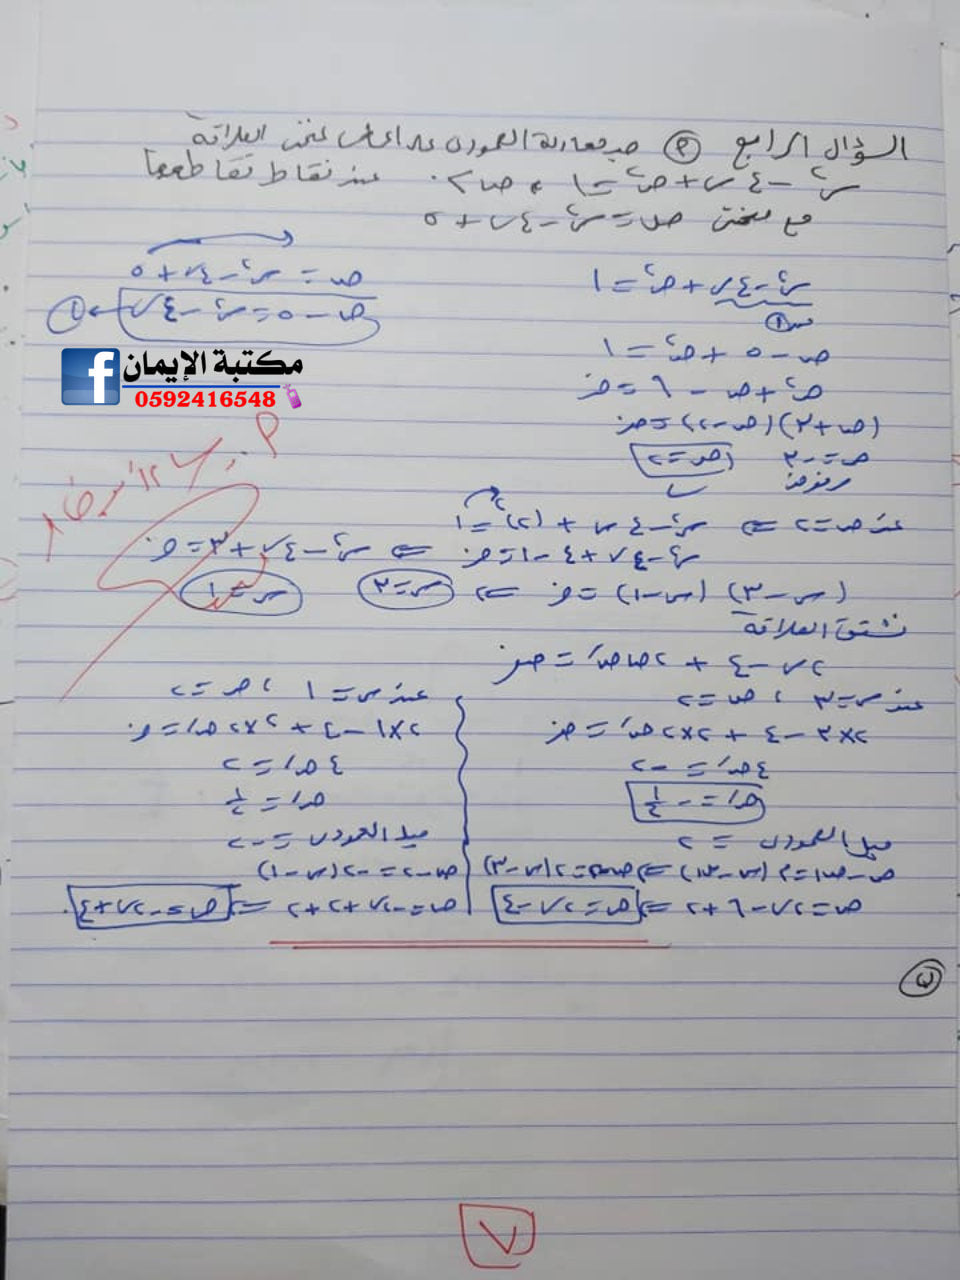 السؤال الرابع (٢) جد معادلة العمودي على المماس لمنحنى العلاقة
س² - ٤س + ص² = ١ ، ص > ٠ عند نقاط تقاطعها
مع منحنى ص = س² - ٤س + ٥
س² - ٤س + ص² = ١
ص = س² - ٤س + ٥
ص - ٥ = س² - ٤س ← ①
ص - ٥ + ص² = ١
ص² + ص - ٦ = صفر
(ص + ٣)(ص - ٢) = صفر
ص = -٣ ، ص = ٢
مرفوض
مكتبة الإيمان
0592416548
عند ص = ٢ ⇐ س² - ٤س + (٢)² = ١
س² - ٤س + ٤ - ١ = صفر ⇐ س² - ٤س + ٣ = صفر
(س - ٣)(س - ١) = صفر ⇐ س = ٣ س = ١
نشتق العلاقة
٢س - ٤ + ٢ص ص' = صفر
عند س = ٣ ، ص = ٢
٢×٣ - ٤ + ٢×٢ ص' = صفر
٤ص' = -٢
ص' = -١/٢
ميل العمودي = ٢
ص - ص١ = م(س - س١) ⇐ ص - ٢ = ٢(س - ٣)
ص = ٢س - ٦ + ٢ ⇐ ص = ٢س - ٤
عند س = ١ ، ص = ٢
٢×١ - ٤ + ٢×٢ ص' = صفر
٤ص' = ٢
ص' = ١/٢
ميل العمودي = -٢
ص - ٢ = -٢(س - ١)
ص = -٢س + ٢ + ٢ ⇐ ص = -٢س + ٤
ب
٧